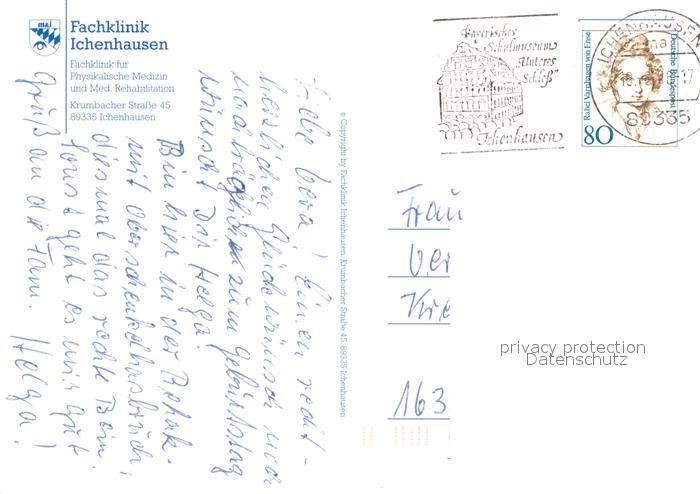 Fachklinik
Ichenhausen
Fachklinik für
Physikalische Medizin
und Med. Rehabilitation
Krumbacher Straße 45
89335 Ichenhausen
Liebe Vera! Einen recht-
herzlichen Glückwunsch noch
nachträglich zum Geburtstag
wünscht Dir Helga.
Bin hier in der Rehak.
mit Oberschenkelhalsbruch,
diesmal das rechte Bein.
Sonst geht es mir gut
Gruß an die Fam. Helga!
© Copyright by Fachklinik Ichenhausen, Krumbacher Straße 45, 89335 Ichenhausen
Bayerisches
Schulmuseum
"Unteres
Schloß"
Ichenhausen
Rahel Varnhagen von Ense
80
Deutsche Bundespost
ICHENHAUSEN
89335
Frau
Ver
Kre
163
privacy protection
Datenschutz